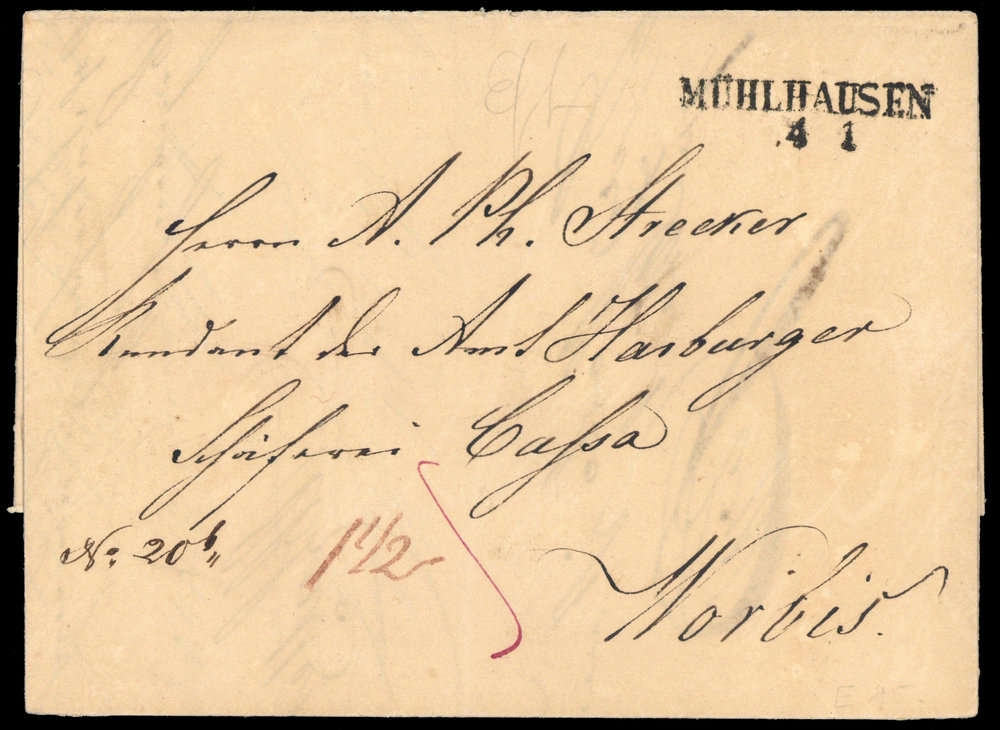 MÜHLHAUSEN
4 1
Herrn A. Ph. Strecker
Rendant der Amt Harburger
Schäferei Cassa
No. 20b"
1 1/2
Worbis.
E 45-